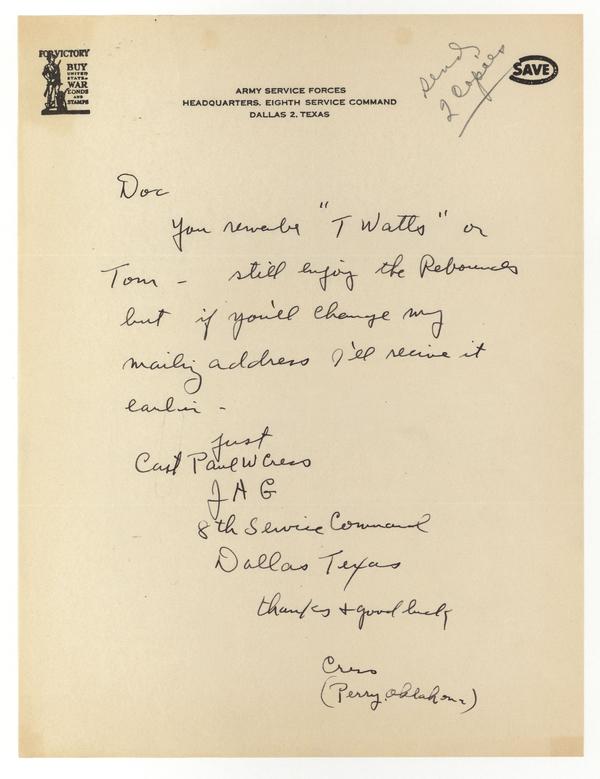 FOR VICTORY
BUY
UNITED
STATES
WAR
BONDS
AND
STAMPS
send
2 Copies
SAVE
ARMY SERVICE FORCES
HEADQUARTERS, EIGHTH SERVICE COMMAND
DALLAS 2, TEXAS
Doc
You remembe "T Watts" or
Tom - still enjoy the Rebounds
but if you'll change my
mailing address I'll receive it
earlier -
just
Capt Paul W Cress
JAG
8th Service Command
Dallas Texas
thanks + good luck
Cress
(Perry, Oklahoma)